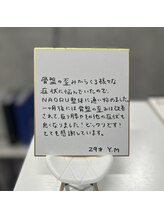 骨盤の歪みからくる様々な
症状に悩んでいたので、
NAORU整体に通い始めました。
一ヶ月後には骨盤の歪みは改善
されて、反り腰やその他の症状も
良くなりました！ビックリです！
とても感謝しています。
29才 Y.M